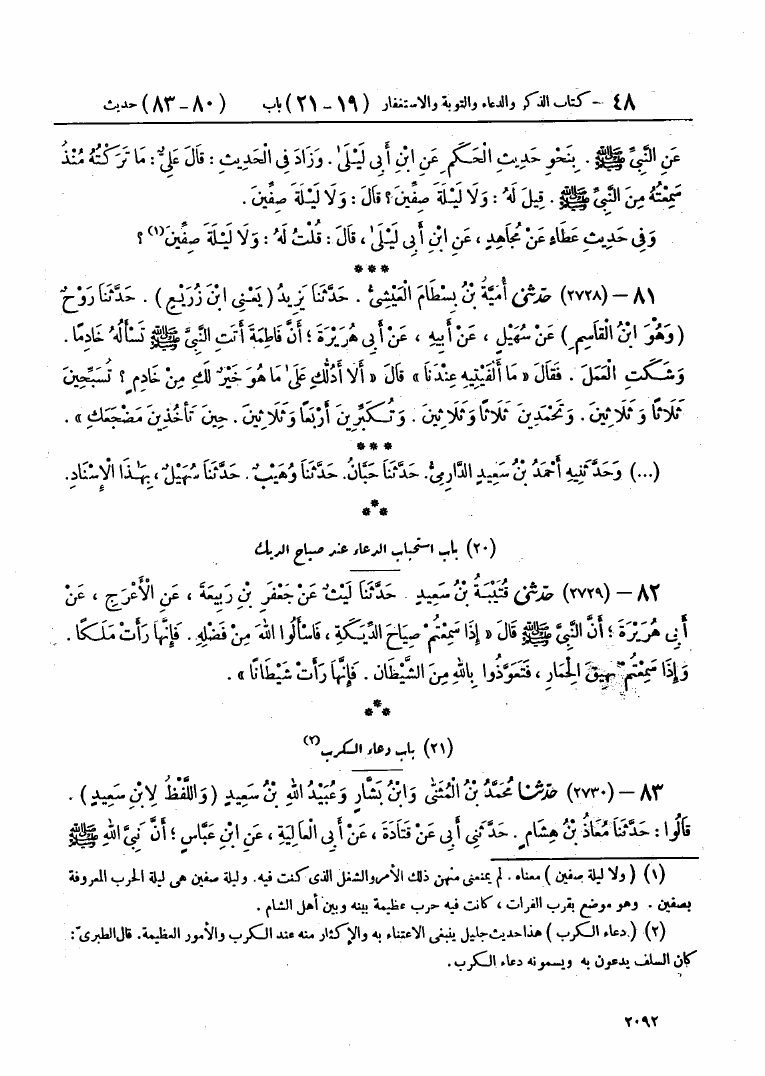 ٤٨ - كتاب الذكر والدعاء والتوبة والاستغفار (١٩ - ٢١) باب (٨٠ - ٨٣) حديث
عَنِ النَّبِيِّ ﷺ . بِنَحْوِ حَدِيثِ الْحَكَمِ عَنِ ابْنِ أَبِي لَيْلَىٰ. وَزَادَ فِي الْحَدِيثِ: قَالَ عَلِيٌّ: مَا تَرَكْتُهُ مُنْذُ
سَمِعْتُهُ مِنَ النَّبِيِّ ﷺ . قِيلَ لَهُ: وَلَا لَيْلَةَ صِفِّينَ؟ قَالَ: وَلَا لَيْلَةَ صِفِّينَ.
وَفِي حَدِيثِ عَطَاءٍ عَنْ مُجَاهِدٍ، عَنِ ابْنِ أَبِي لَيْلَىٰ، قَالَ: قُلْتُ لَهُ: وَلَا لَيْلَةَ صِفِّينَ(١)؟
***
٨١ - (٢٧٢٨) حَدَّثَنِي أُمَيَّةُ بْنُ بِسْطَامَ الْعَيْشِيُّ. حَدَّثَنَا يَزِيدُ (يَعْنِي ابْنَ زُرَيْعٍ). حَدَّثَنَا رَوْحٌ
(وَهُوَ ابْنُ الْقَاسِمِ) عَنْ سُهَيْلٍ، عَنْ أَبِيهِ، عَنْ أَبِي هُرَيْرَةَ؛ أَنَّ فَاطِمَةَ أَتَتِ النَّبِيَّ ﷺ تَسْأَلُهُ خَادِمًا.
وَشَكَتِ الْعَمَلَ. فَقَالَ «مَا أَلْفَيْتِيهِ عِنْدَنَا» قَالَ «أَلَا أَدُلُّكِ عَلَىٰ مَا هُوَ خَيْرٌ لَكِ مِنْ خَادِمٍ؟ تُسَبِّحِينَ
ثَلَاثًا وَثَلَاثِينَ. وَتَحْمَدِينَ ثَلَاثًا وَثَلَاثِينَ. وَتُكَبِّرِينَ أَرْبَعًا وَثَلَاثِينَ. حِينَ تَأْخُذِينَ مَضْجَعَكِ».
***
(...) وَحَدَّثَنِيهِ أَحْمَدُ بْنُ سَعِيدٍ الدَّارِمِيُّ. حَدَّثَنَا حَبَّانُ. حَدَّثَنَا وُهَيْبٌ. حَدَّثَنَا سُهَيْلٌ، بِهَٰذَا الْإِسْنَادِ.
***
(٢٠) باب استحباب الدعاء عند صياح الديك
٨٢ - (٢٧٢٩) حَدَّثَنِي قُتَيْبَةُ بْنُ سَعِيدٍ. حَدَّثَنَا لَيْثٌ عَنْ جَعْفَرِ بْنِ رَبِيعَةَ، عَنِ الْأَعْرَجِ، عَنْ
أَبِي هُرَيْرَةَ؛ أَنَّ النَّبِيَّ ﷺ قَالَ «إِذَا سَمِعْتُمْ صِيَاحَ الدِّيَكَةِ، فَاسْأَلُوا اللهَ مِنْ فَضْلِهِ. فَإِنَّهَا رَأَتْ مَلَكًا.
وَإِذَا سَمِعْتُمْ نَهِيقَ الْحِمَارِ، فَتَعَوَّذُوا بِاللهِ مِنَ الشَّيْطَانِ. فَإِنَّهَا رَأَتْ شَيْطَانًا».
***
(٢١) باب دعاء الكرب(٢)
٨٣ - (٢٧٣٠) حَدَّثَنَا مُحَمَّدُ بْنُ الْمُثَنَّىٰ وَابْنُ بَشَّارٍ وَعُبَيْدُ اللهِ بْنُ سَعِيدٍ (وَاللَّفْظُ لِابْنِ سَعِيدٍ).
قَالُوا: حَدَّثَنَا مُعَاذُ بْنُ هِشَامٍ. حَدَّثَنِي أَبِي عَنْ قَتَادَةَ، عَنْ أَبِي الْعَالِيَةِ، عَنِ ابْنِ عَبَّاسٍ؛ أَنَّ نَبِيَّ اللهِ ﷺ
(١) (ولا ليلة صفين) معناه. لم يمنعني منهن ذلك الأمر والشغل الذى كنت فيه. وليلة صفين هى ليلة الحرب المعروفة
بصفين. وهو موضع بقرب الفرات، كانت فيه حرب عظيمة بينه وبين أهل الشام.
(٢) (دعاء الكرب) هذا حديث جليل ينبغى الاعتناء به والإكثار منه عند الكرب والأمور العظيمة. قال الطبرىّ:
كان السلف يدعون به ويسمونه دعاء الكرب.
٢٠٩٢